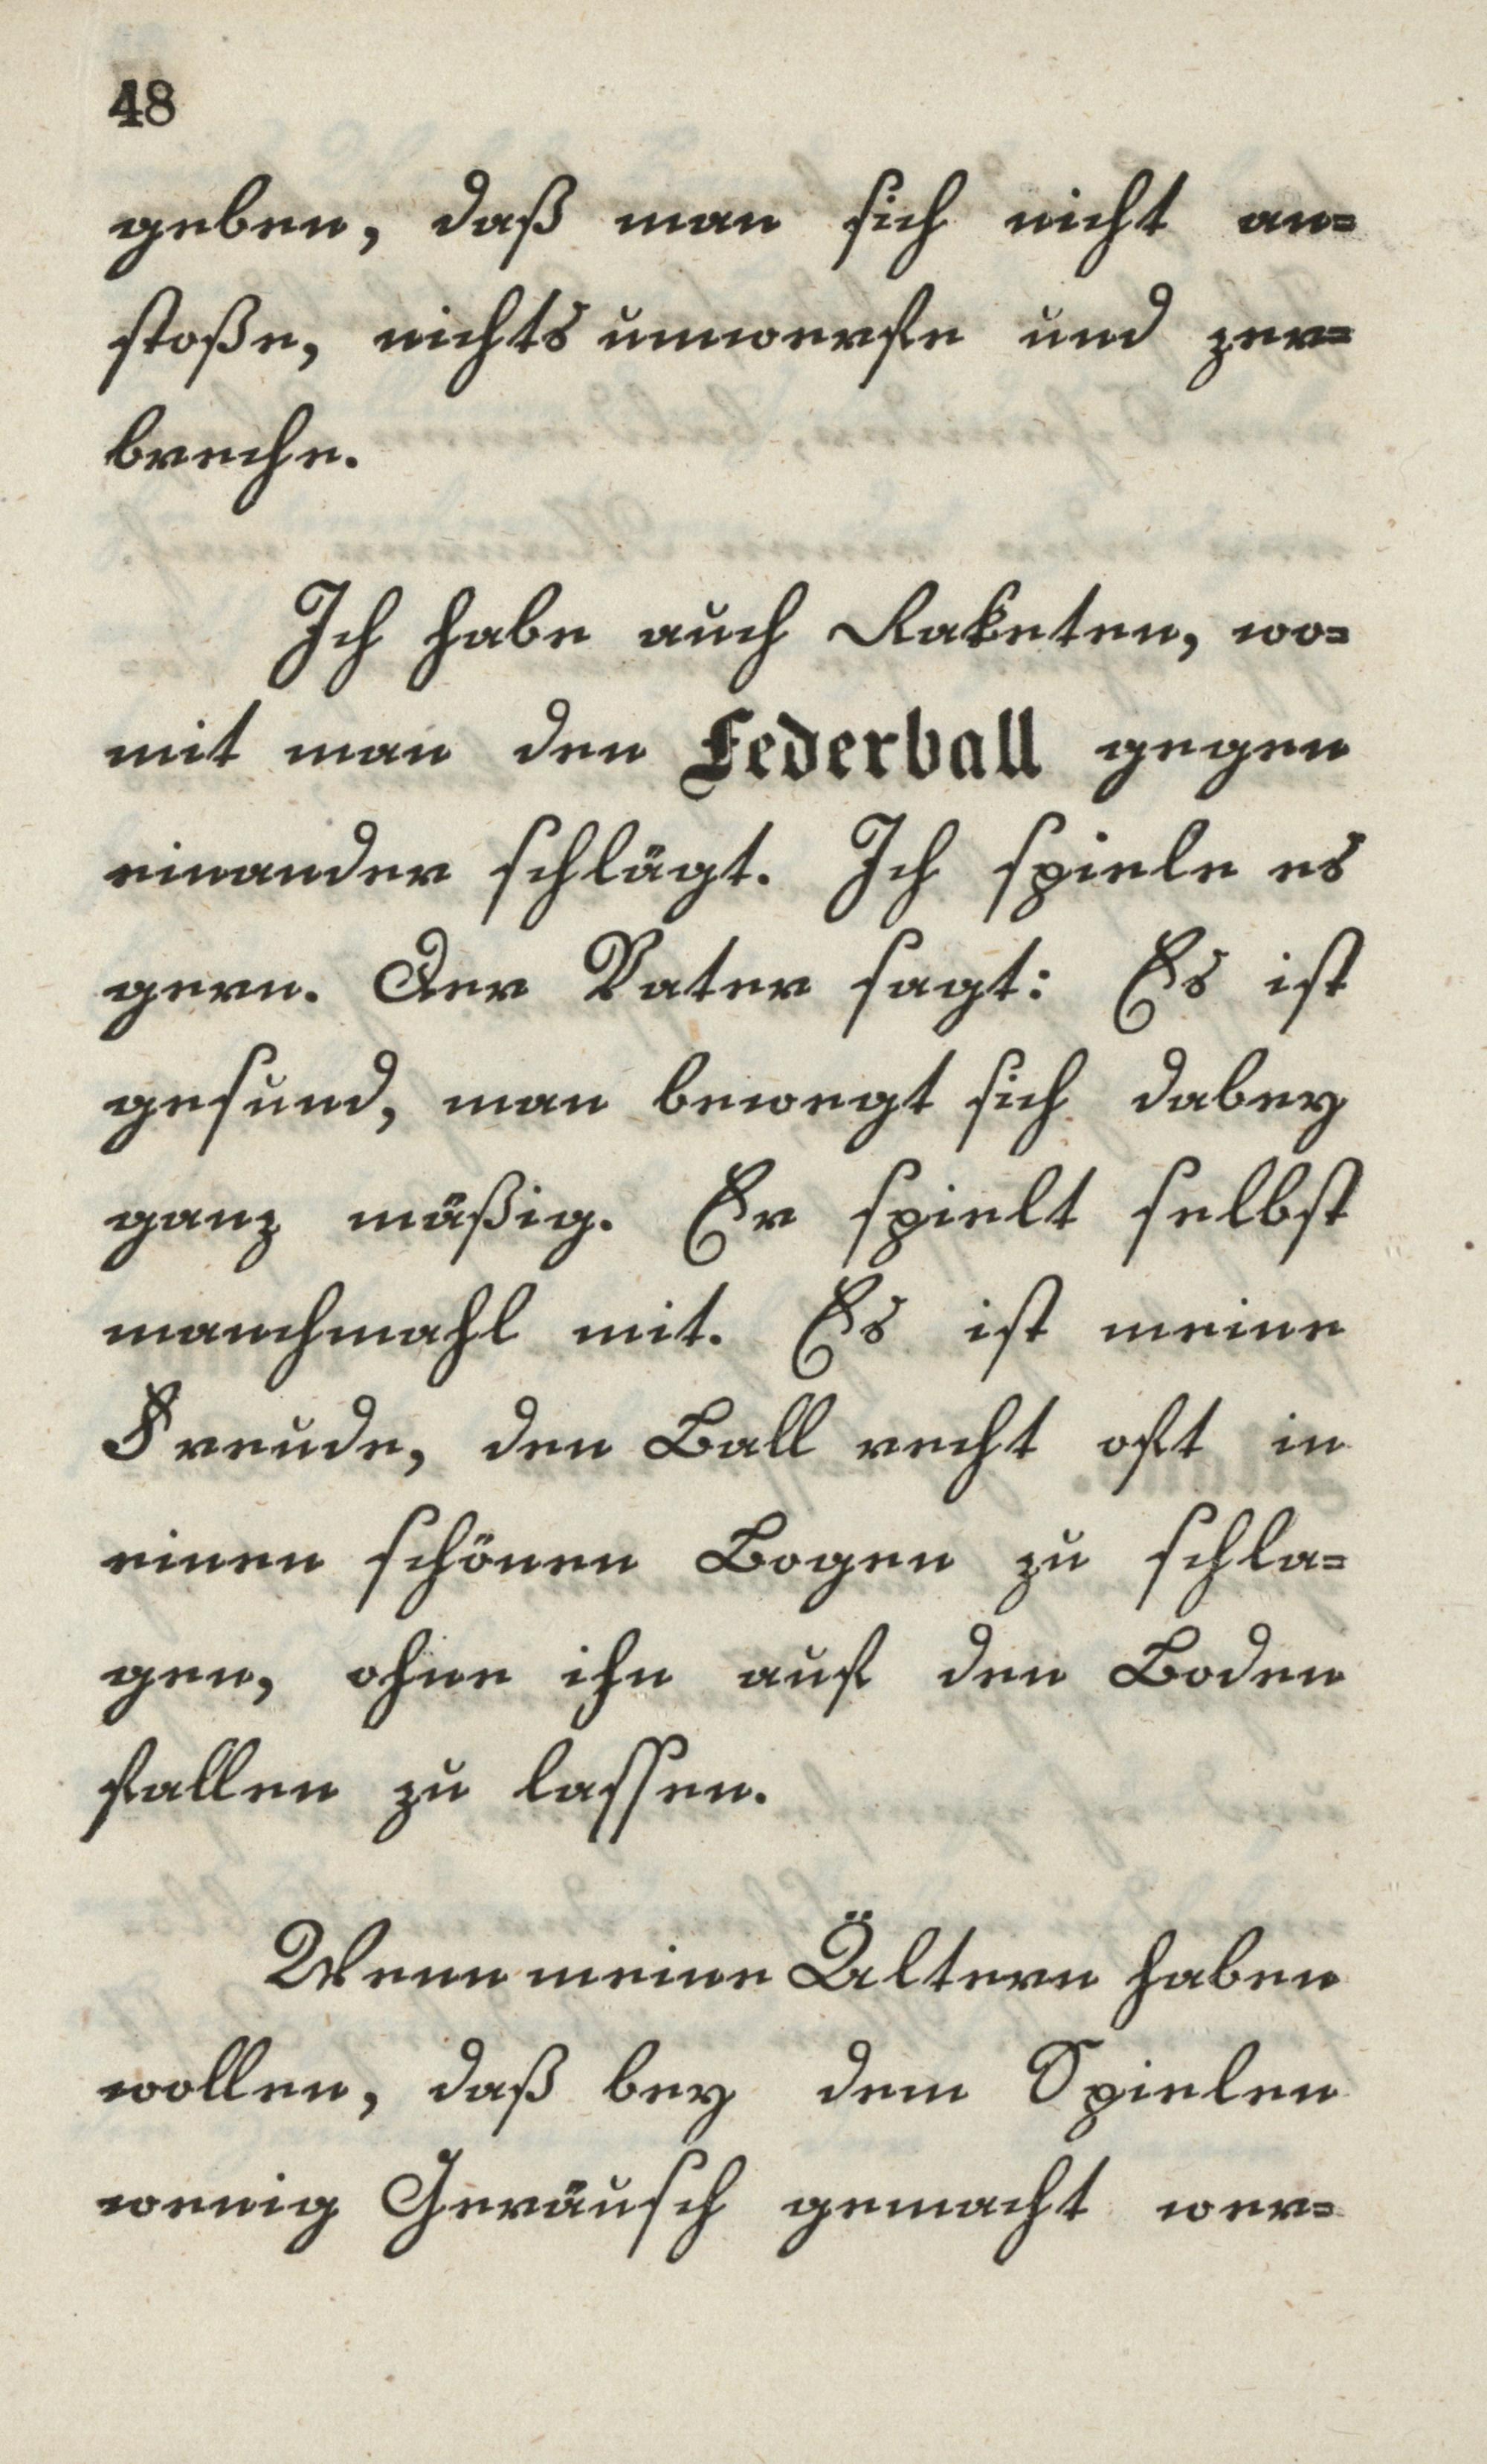 48
geben, daß man sich nicht an=
stoße, nichts umwerfe und zer=
breche.
Ich habe auch Raketen, wo=
mit man den Federball gegen
einander schlägt. Ich spiele es
gern. Der Vater sagt: Es ist
gesund, man bewegt sich dabey
ganz mäßig. Er spielt selbst
manchmahl mit. Es ist meine
Freude, den Ball recht oft in
einen schönen Bogen zu schla=
gen, ohne ihn auf den Boden
fallen zu lassen.
Wenn meine Ältern haben
wollen, daß bey dem Spielen
wenig Geräusch gemacht wer=